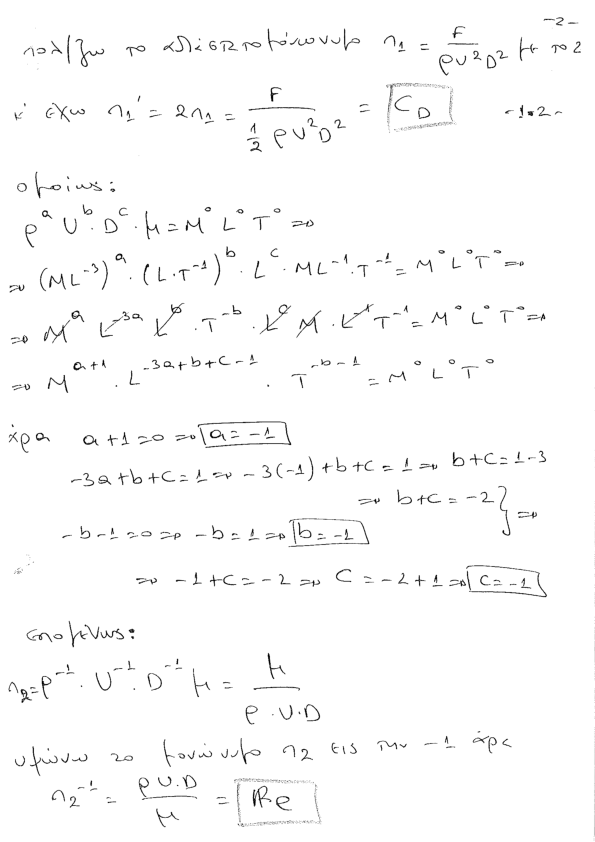 -2-
πολ/ζω το αδιάστατο μονώνυμο π₁ = F / ρU²D² με το 2
κ' έχω π₁' = 2π₁ = F / ½ ρU²D² = C_D -1.2-
ομοίως:
ρᵃ Uᵇ · Dᶜ · μ = M⁰ L⁰ T⁰ ⇒
⇒ (ML⁻³)ᵃ · (L·T⁻¹)ᵇ · Lᶜ · ML⁻¹ · T⁻¹ = M⁰ L⁰ T⁰ ⇒
⇒ Mᵃ L⁻³ᵃ Lᵇ · T⁻ᵇ · Lᶜ M · L⁻¹ T⁻¹ = M⁰ L⁰ T⁰ ⇒
⇒ Mᵃ⁺¹ · L⁻³ᵃ⁺ᵇ⁺ᶜ⁻¹ · T⁻ᵇ⁻¹ = M⁰ L⁰ T⁰
άρα a+1=0 ⇒ a=-1
-3a+b+c=1 ⇒ -3(-1)+b+c=1 ⇒ b+c=1-3
⇒ b+c=-2 } ⇒
-b-1=0 ⇒ -b=1 ⇒ b=-1
⇒ -1+c=-2 ⇒ c=-2+1 ⇒ c=-1
επομένως:
π₂=ρ⁻¹ · U⁻¹ · D⁻¹ μ = μ / ρ·U·D
υψώνω το μονώνυμο π₂ εις την -1 άρα
π₂⁻¹ = ρU·D / μ = Re